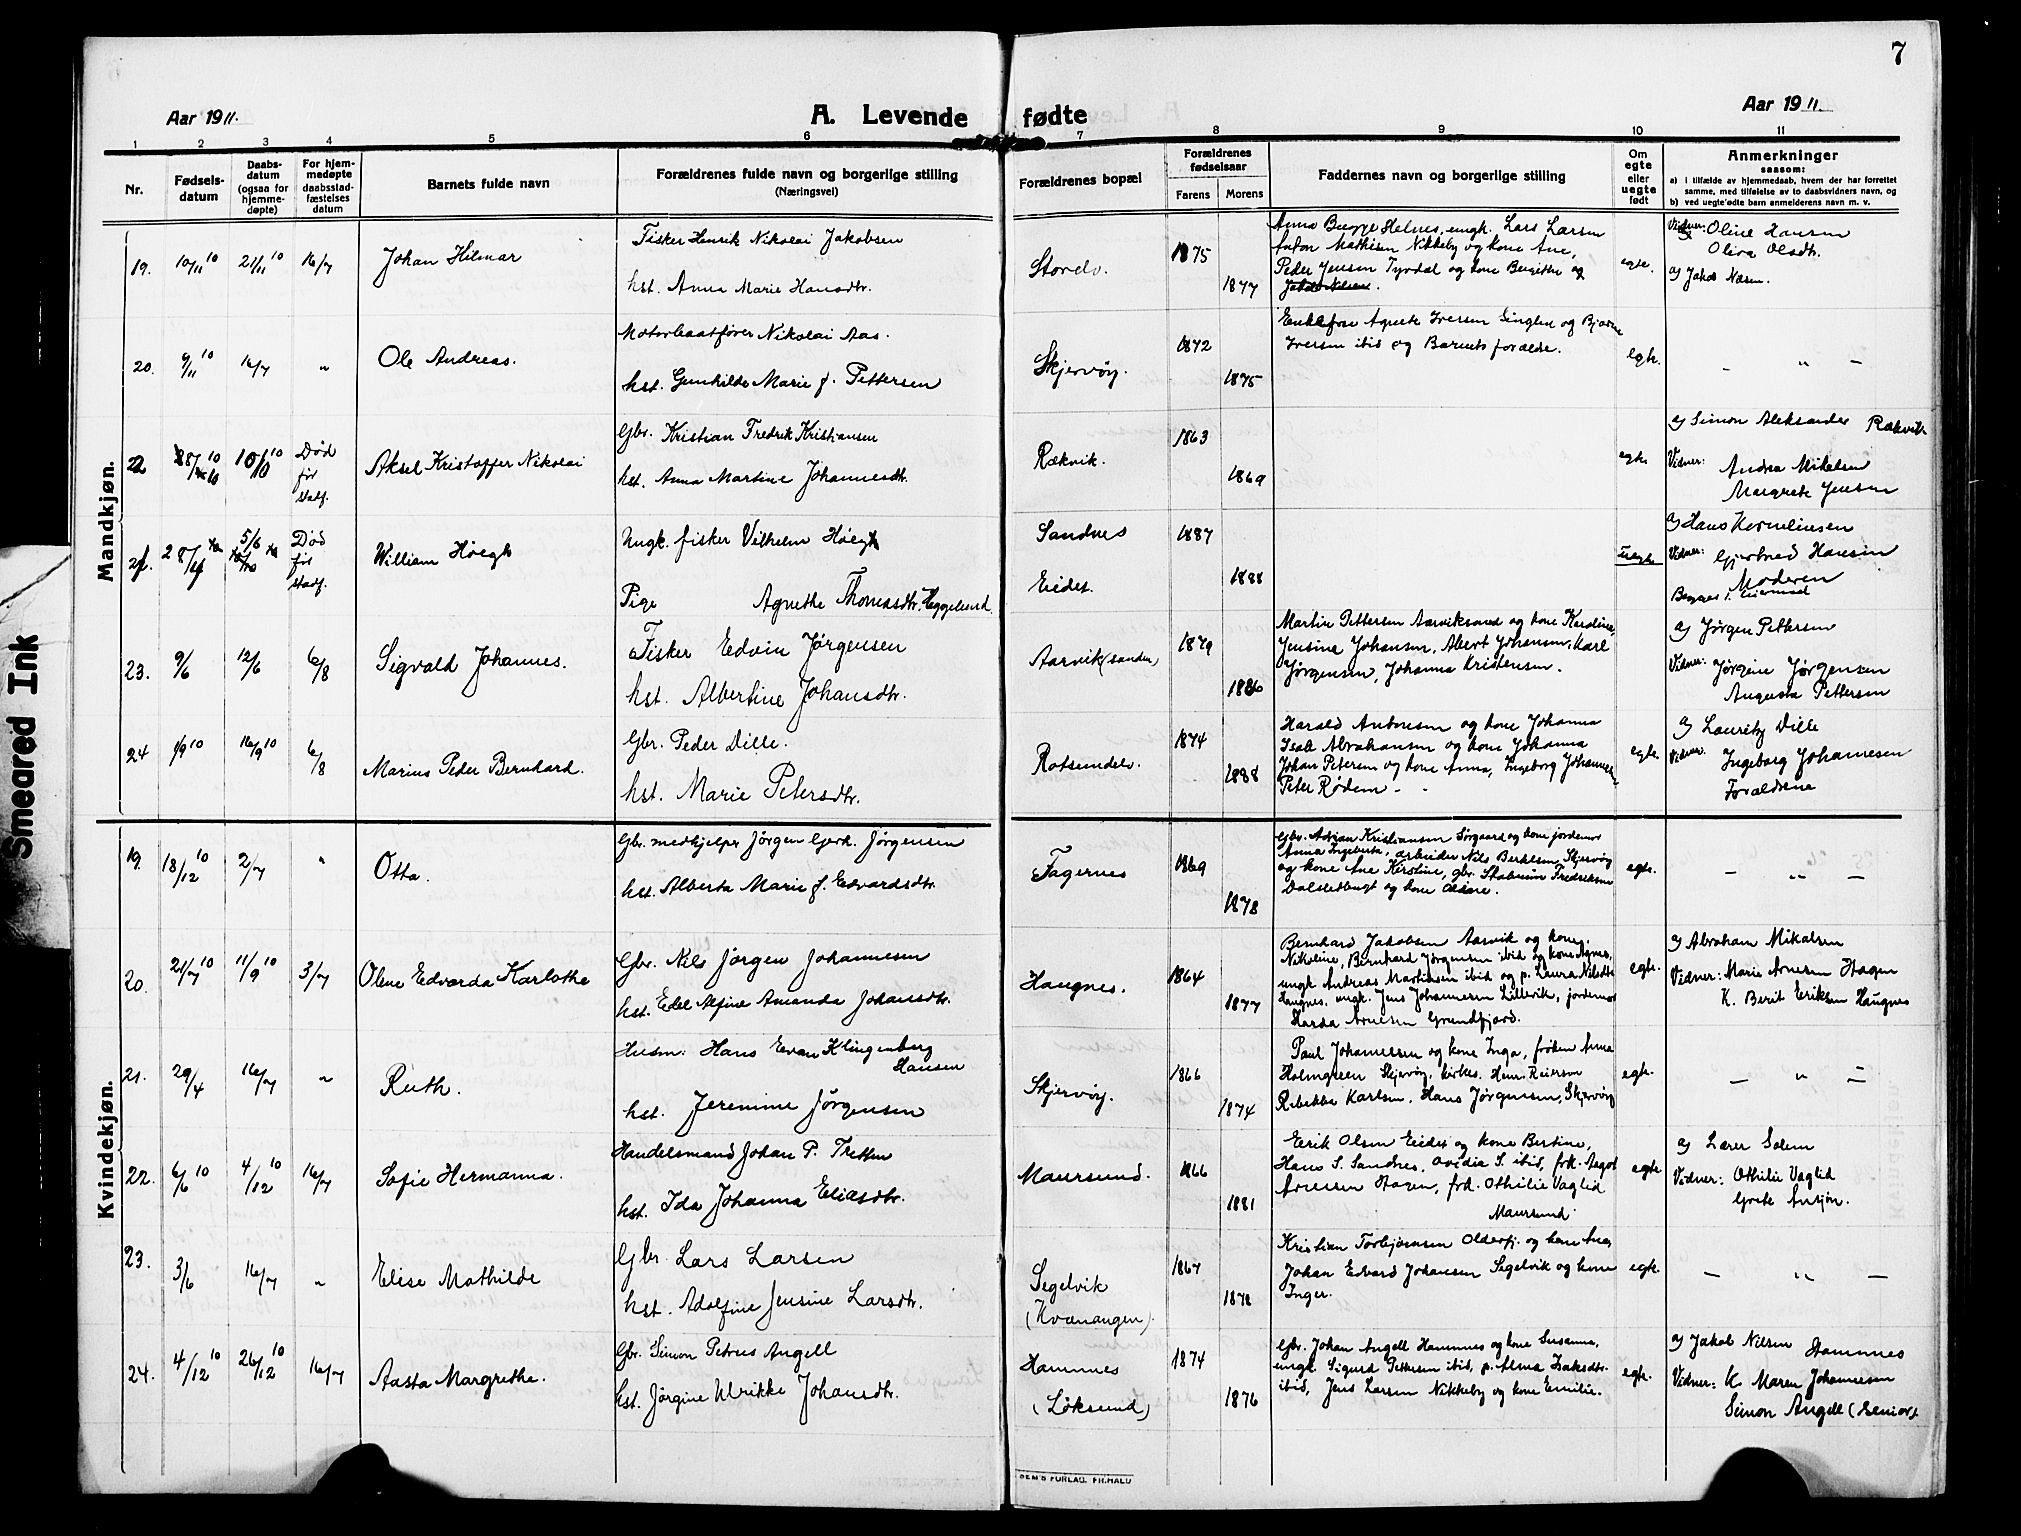 7
Aar 1911.
A. Levende fødte
Aar 1911.
1 2 3 4 5 6 7 8 9 10 11
Nr.
Fødsels-
datum
Daabs-
datum
(ogsaa for
hjemme-
døpte)
For hjem-
medøpte
daabsstad-
fæstelses
datum
Barnets fulde navn
Forældrenes fulde navn og borgerlige stilling
(Næringsvei)
Forældrenes bopæl
Forældrenes
fødselsaar
Farens Morens
Faddernes navn og borgerlige stilling
Om
egte
eller
uegte
født
Anmerkninger
saasom:
a) i tilfælde av hjemmedaab, hvem der har forrettet
samme, med tilføielse av to daabsvidners navn, og
b) ved uegte fødte barn anmelderens navn m. v.
Mandkjøn.
19. 10/11 10 21/11 10 16/7 Johan Hilmar
Fisker Henrik Nikolai Jakobsen
hst. Anna Marie Hansdtr.
Storelv. 1875 1877
Anna Bugge Helnes, ungk. Lars Larsen
Anton Mathisen Nikkeby og kone Ane,
Peder Jensen Tyrdal og kone Bergitte og
Jakob Nilsen.
egte.
Vidner: Oline Hansen
Oliva Olsdtr.
a) Jakob Næsen.
20. 9/11 10 16/7 " Ole Andreas.
Motorbaatfører Nikolai Aas.
hst. Gunhilde Marie f. Pettersen
Skjervøy. 1872 1875
Enkefrue Agnete Iversen Singlen og Bjarne
Iversen ibid og Barnets forældre.
egte.
- " -
22 10/10 10 Død før stadf. Aksel Kristoffer Nikolai
Gbr. Kristian Fredrik Kristiansen
hst. Anna Martine Johannesdtr.
Rækvik. 1863 1869
egte
a) Simon Aleksander Rækvik
Vidner: Andrea Mikalsen
Margrete Jensen
21. 28/4 5/6 Død før stadf. William Høegh
Ungk. fisker Vilhelm Høegh
Pige Agnethe Thomasdtr. Heggelund.
Sandnes
Eidet.
1887 1888
uegte
a) Hans Korneliussen
Vidner: Gjertrud Hansen
Moderen
23. 9/6 12/6 6/8 Sigvald Johannes.
Fisker Edvin Jørgensen
hst. Albertine Johansdtr.
Aarvik (sanden) 1879 1886
Martin Pettersen Aarviksand og kone Karoline,
Jensine Johansen, Albert Johansen, Karl
Jørgensen, Johanna Kristensen.
a) Jørgen Pettersen
Vidner: Jørgine Jørgensen
Augusta Pettersen
24 1/9 10 16/9 10 6/8 Marius Peder Bernhard.
Gbr. Peder Dille.
hst. Marie Petersdtr.
Rotsundelv. 1874 1888
Harald Antonsen og kone Johanna
Isak Abrahamsen og kone Johanna
Johan Petersen og kone Anna, Ingeborg Johannesen
Peter Rødem - -
egte.
a) Lauritz Dille
Vidner. Ingeborg Johannesen
Forældrene
Kvindekjøn.
19. 18/12 10 2/7 " Otta.
Gbr. medhjelper Jørgen Gerh. Jørgensen
hst. Alberta Marie f. Edvardsdtr.
Fagernes 1869 1878
Gbr. Adrian Kristiansen Sørgaard og kone jordemor
Anna Ingeberta, arbeider Nils Berteusen Skjervøy
og kone Ane Kirstine, gbr. Fredriksen
Dalsletbugt og kone
egte.
- " -
20. 21/7 10 11/9 10 3/7 Olene Edvarda Karlotha
Gbr. Nils Jørgen Johannesen
hst. Edel Alfine Amanda Johansdtr.
Haugnes. 1864 1877
Bernhard Jakobsen Aarvik og kone
Nikoline, Bernhard Jørgensen ibid og kone Agnes,
ungk Andreas Martinsen ibid og p. Laura Nilsdtr
Haugnes, ungk. Jens Johannesen Lillevik, jordemor
Harda Arnesen Grundfjord.
egte.
a) Abraham Mikalsen
Vidner: Marie Arnesen Hagen
K. Berit Eriksen Haugnes
21. 29/4 16/7 " Ruth.
Husm: Hans Evan Klingenberg
Hansen
hst. Jeremine Jørgensen
Skjervøy. 1866 1874
Paul Johannessen og kone Inga, frøken Anna
Holmgreen Skjervøy, kirkes. Henr. Reiersen
Rebekka Karlsen, Hans Jørgensen, Skjervøy
egte.
- " -
22. 6/6 10 4/12 10 16/7 Sofie Hermanna.
Handelsmand Johan P. Tretten
hst. Ida Johanna Eliasdtr.
Maursund. 1866 1881
Erik Olsen Eidet og kone Bertine,
Hans S. Sandnes, Ovidia S. ibid, frk. Aagot
Arnesen Hagen, frk. Othilie Vaglid
Maursund
egte
a) Lærer Solem
Vidner: Othilie Vaglid
Grete Ansjøn.
23. 3/6 16/7 " Elise Mathilde
Gbr Lars Larsen
hst. Adolfine Jensine Larsdtr.
Segelvik
(Kvænangen). 1867 1878
Kristian Torbjørnsen Olderfj. og kone Ane,
Johan Edvard Johansen Segelvik og kone
Inger.
egte.
- " -
24. 4/12 10 26/12 10 16/7 Aasta Margrethe.
Gbr. Simon Petrus Angell
hst. Jørgine Ulrikke Johansdtr.
Hamnes
(Løksund) 1874 1876
Gbr. Johan Angell Hamnes og kone Susanna,
ungk. Sigurd Pettersen ibid, p. Alma Isaksdtr.
ibid, Jens Larsen Nikkeby og kone Emilie.
egte.
a) Jakob Nilsen Hamnes
Vidner: K Maren Johannesen
Simon Angell (Senior).
SEM'S FORLAG, FR.HALD
Smeared Ink